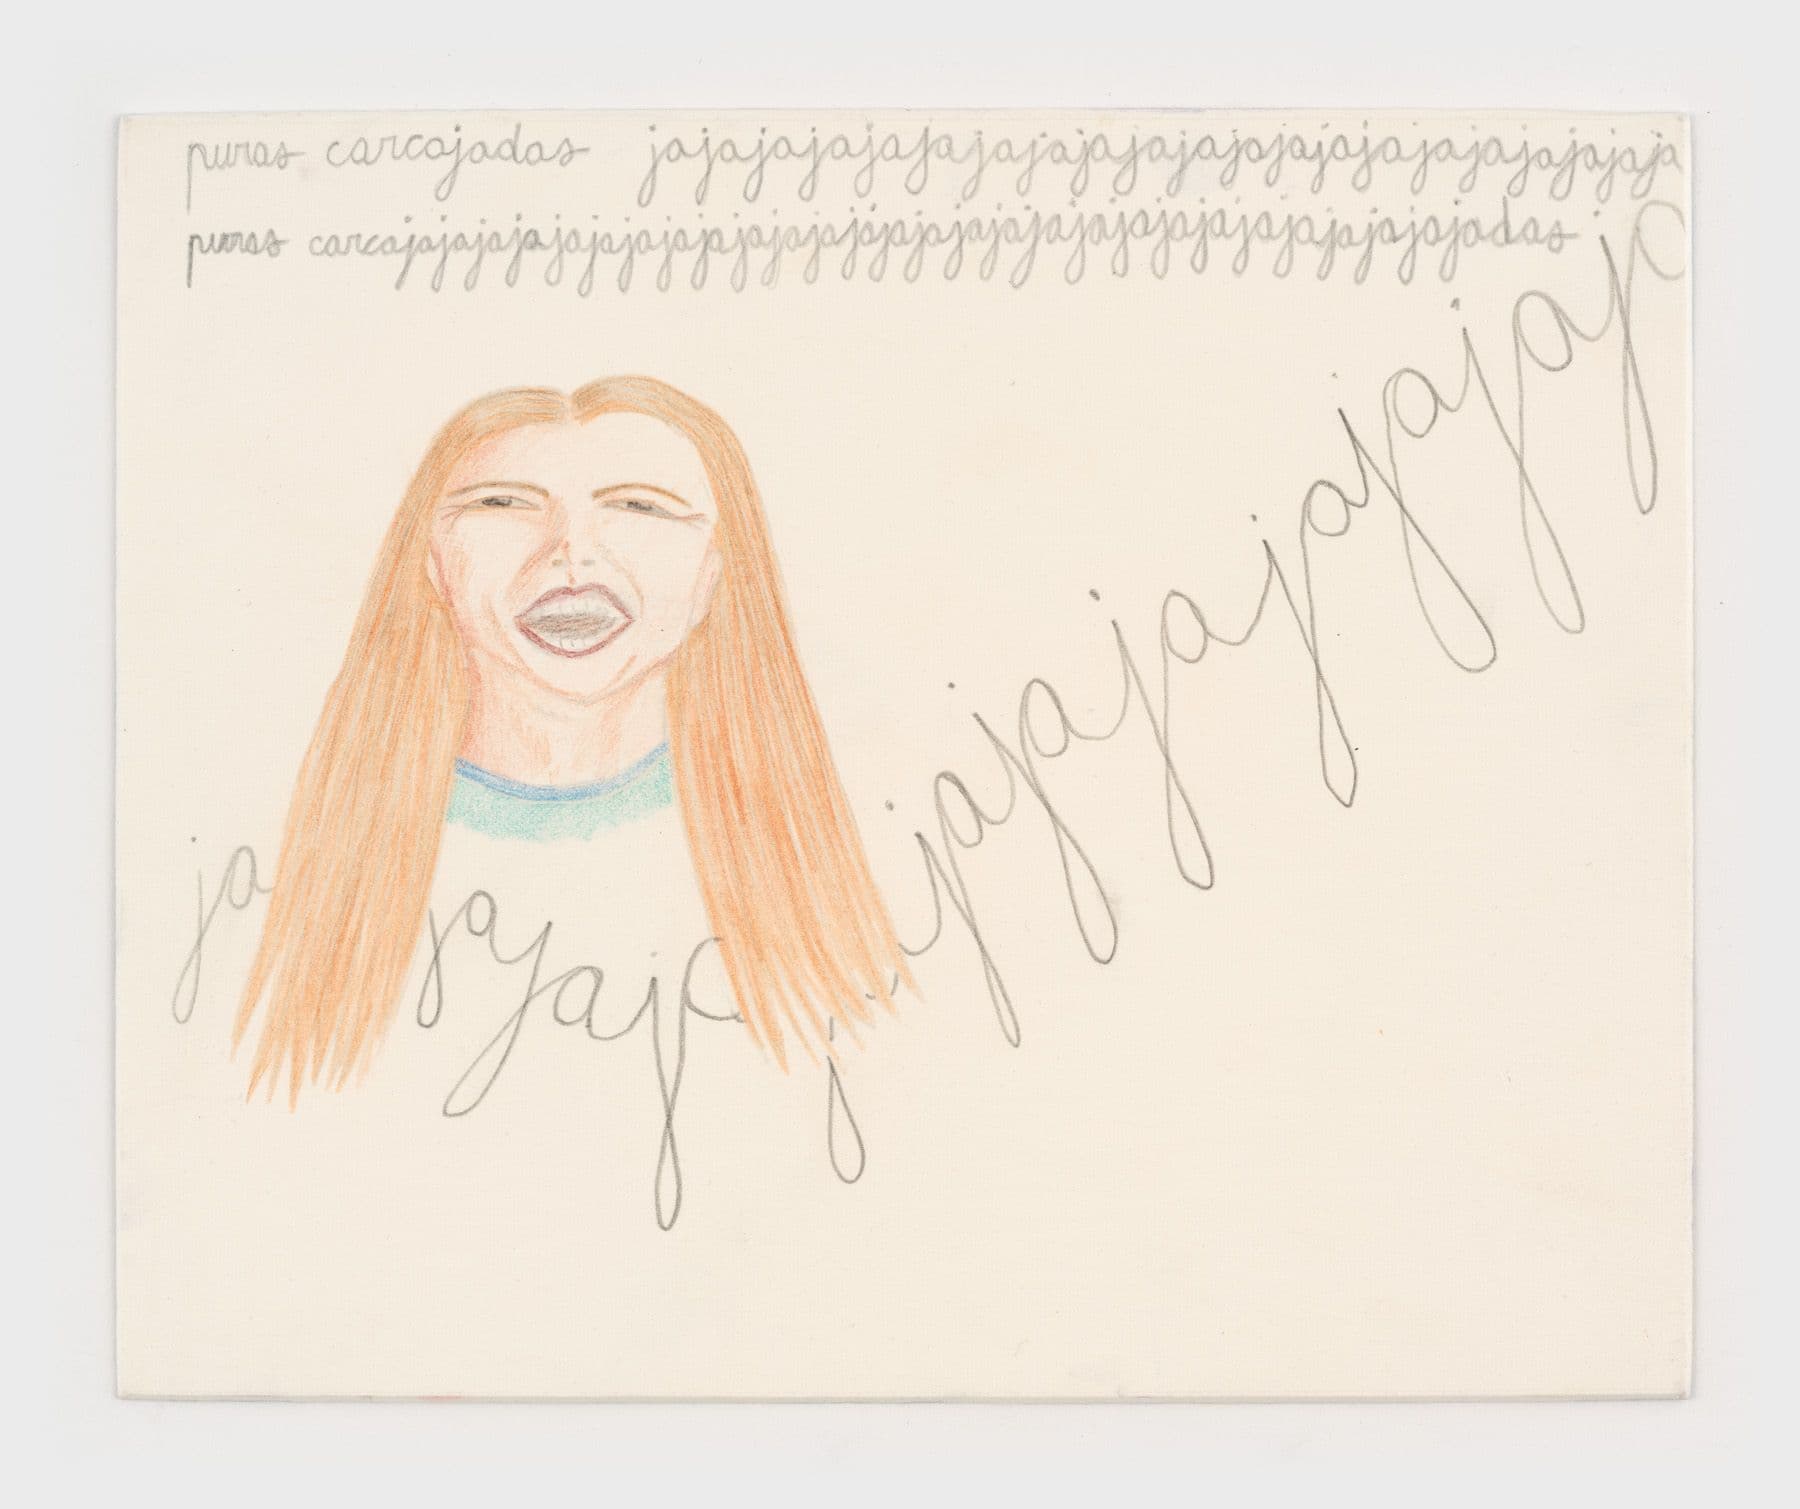 puras carcajadas jajajajajajajajajajajajajajajajajajajajajaja
puras carcajajajajajajajajajajajajajajajajajajajajajajajajajajajadas
ja jajaja j jajajajajajaja